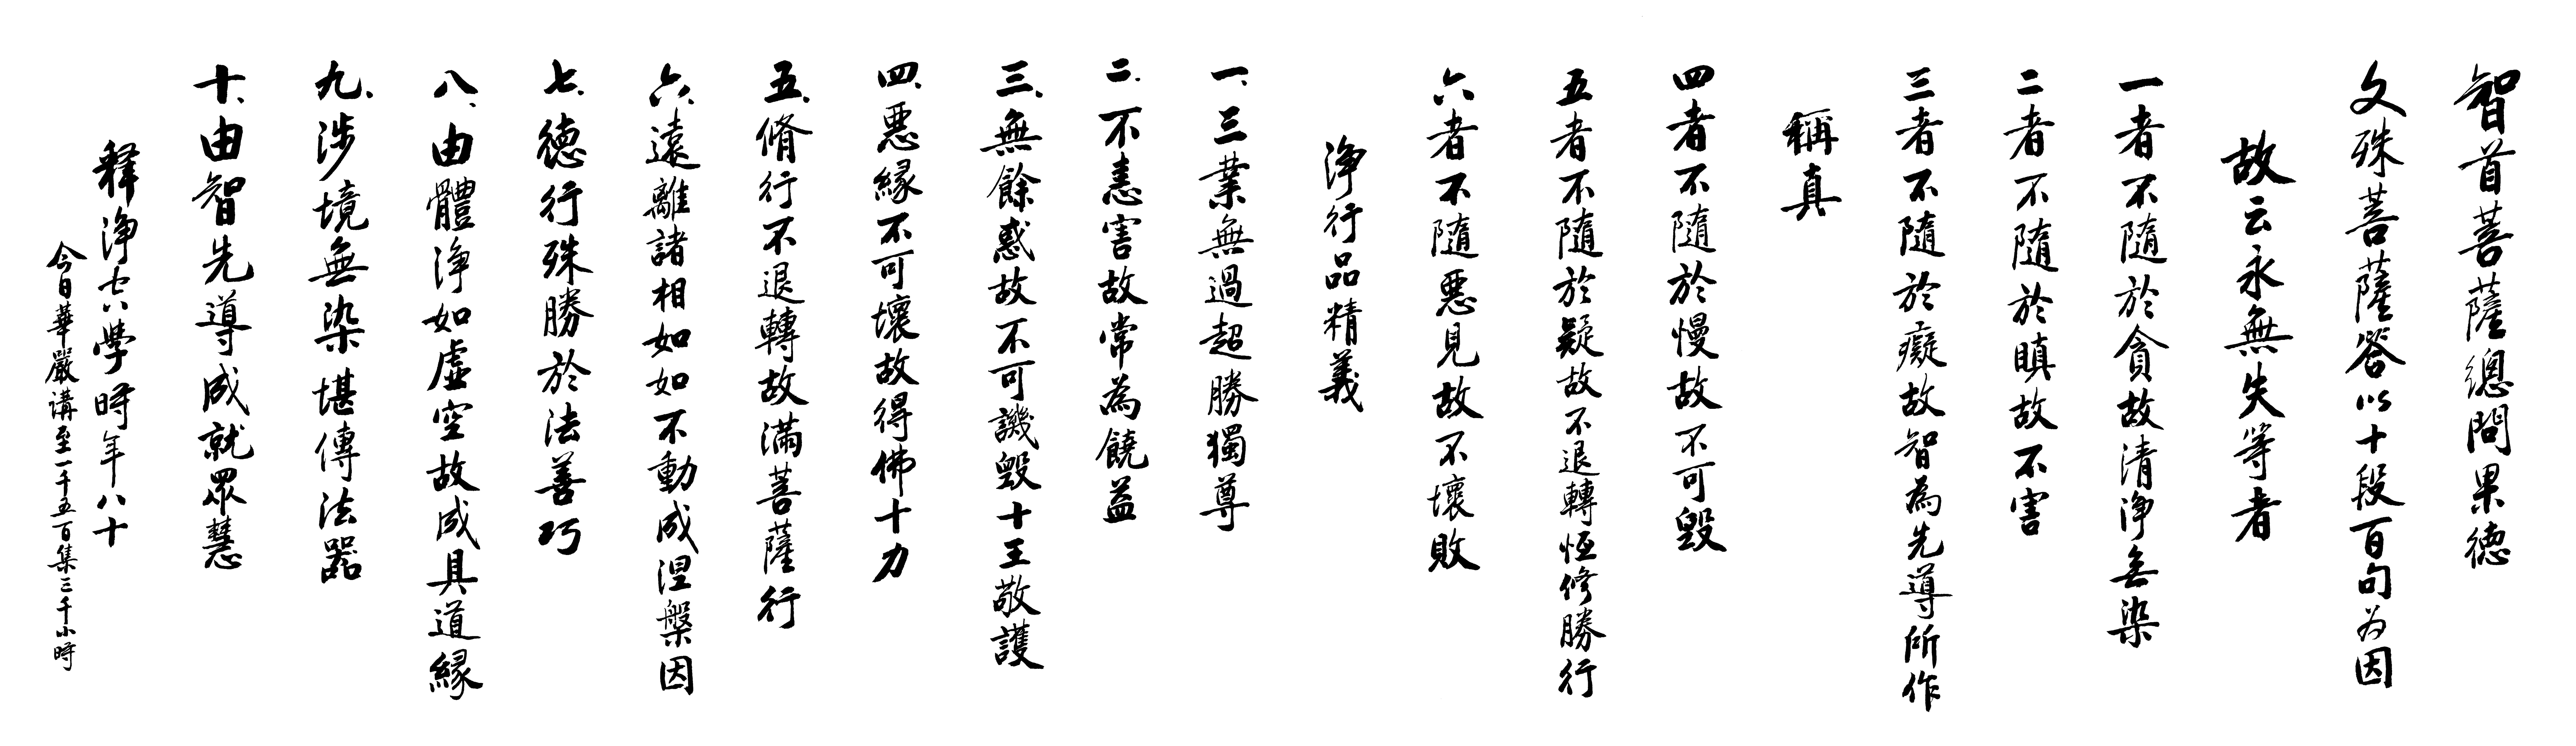 智首菩薩總問果德
文殊菩薩答以十段百句为因
故云永無失等者
一者不隨於貪故清淨无染
二者不隨於瞋故不害
三者不隨於癡故智為先導所作
稱真
四者不隨於慢故不可毀
五者不隨於疑故不退轉恆修勝行
六者不隨惡見故不壞敗
淨行品精義
一、三業無過超勝獨尊
二、不恚害故常為饒益
三、無餘惑故不可譏毀十王敬護
四、惡緣不可壞故得佛十力
五、脩行不退轉故滿菩薩行
六、遠離諸相如如不動成涅槃因
七、德行殊勝於法善巧
八、由體淨如虛空故成具道緣
九、涉境無染堪傳法器
十、由智先導成就眾慧
釋淨空學時年八十
今日華嚴講至一千五百集三千小時